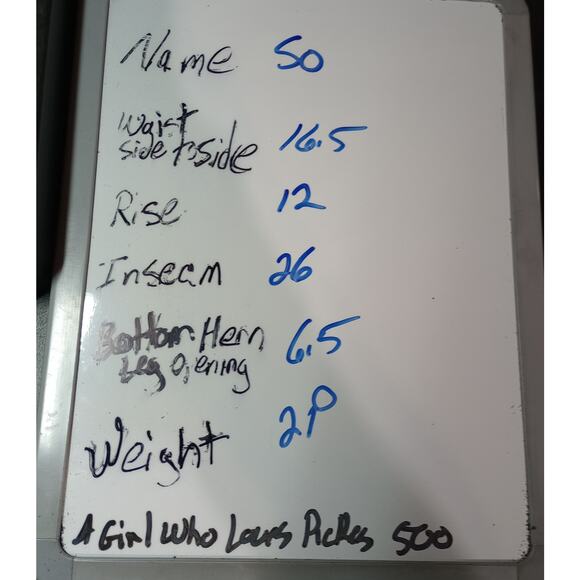 Name 50
Waist
side to side 16.5
Rise 12
Inseam 26
Bottom Hem 6.5
Leg Opening
Weight 2P
A Girl Who Loves Pickles 500